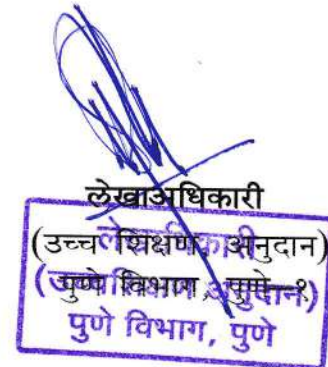 लेखाअधिकारी
(उच्च शिक्षण, अनुदान)
पुणे विभाग, पुणे–१
लेखाधिकारी
(उच्च शिक्षण अनुदान)
पुणे विभाग, पुणे